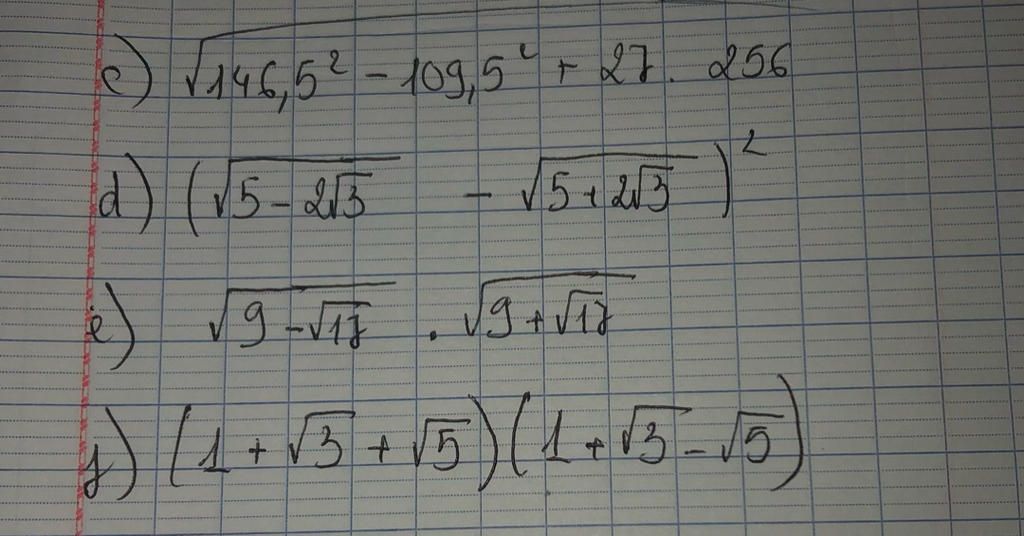 c) √(146,5² - 109,5² + 27. 256)
d) (√(5 - 2√3) - √(5 + 2√3))²
e) √(9 - √17) . √(9 + √17)
f) (1 + √3 + √5)(1 + √3 - √5)